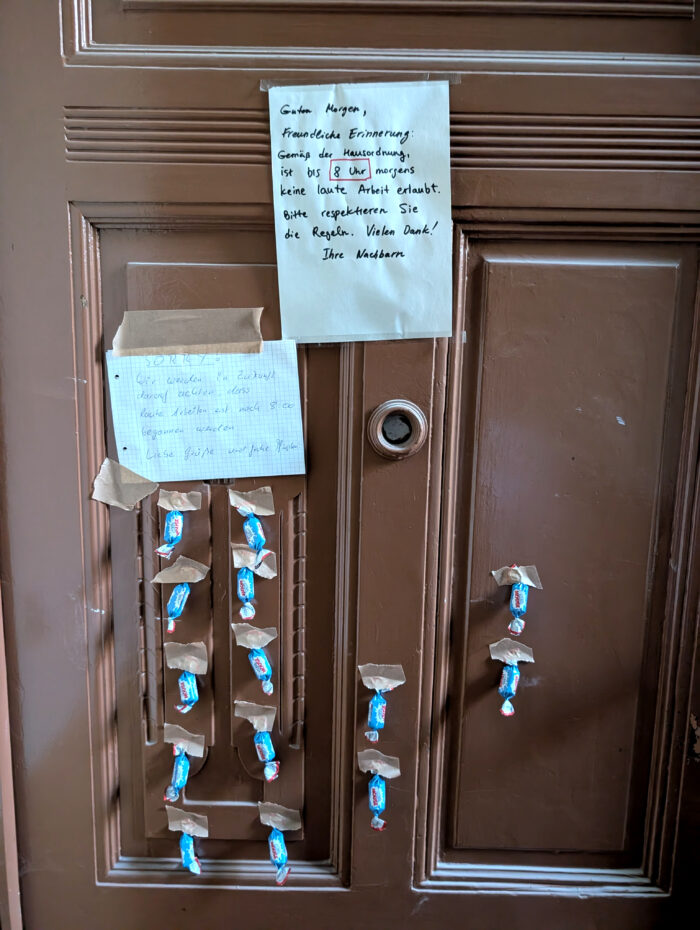 Guten Morgen,
Freundliche Erinnerung:
Gemäß der Hausordnung,
ist bis 8 Uhr morgens
keine laute Arbeit erlaubt.
Bitte respektieren Sie
die Regeln. Vielen Dank!
Ihre Nachbarn
SORRY!
Wir werden in Zukunft
darauf achten, dass
laute Arbeiten erst nach 8 00
begonnen werden
Liebe Grüße und frohe